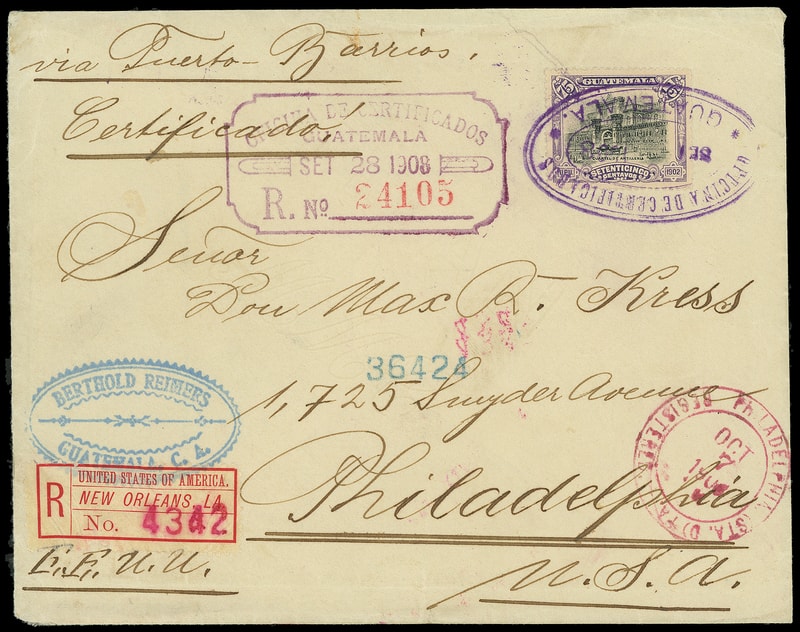 via Puerto-Barrios.
Certificado!
OFICINA DE CERTIFICADOS
GUATEMALA
SET 28 1908
R. No 24105
GUATEMALA
75 75
CUARTEL DE ARTILLERIA
SETENTICINCO
CENTAVOS
1902
OFICINA DE CERTIFICADOS
GUATEMALA.
Señor
Don Max R. Kress
36424
1,725 Snyder Avenue
Philadelphia
U. S. A.
BERTHOLD REIMERS
GUATEMALA, C. A.
R
UNITED STATES OF AMERICA.
NEW ORLEANS, LA.
No. 4342
E.E.U.U.
PHILADELPHIA, STA. D) PA.
OCT
7
1908
REGISTERED